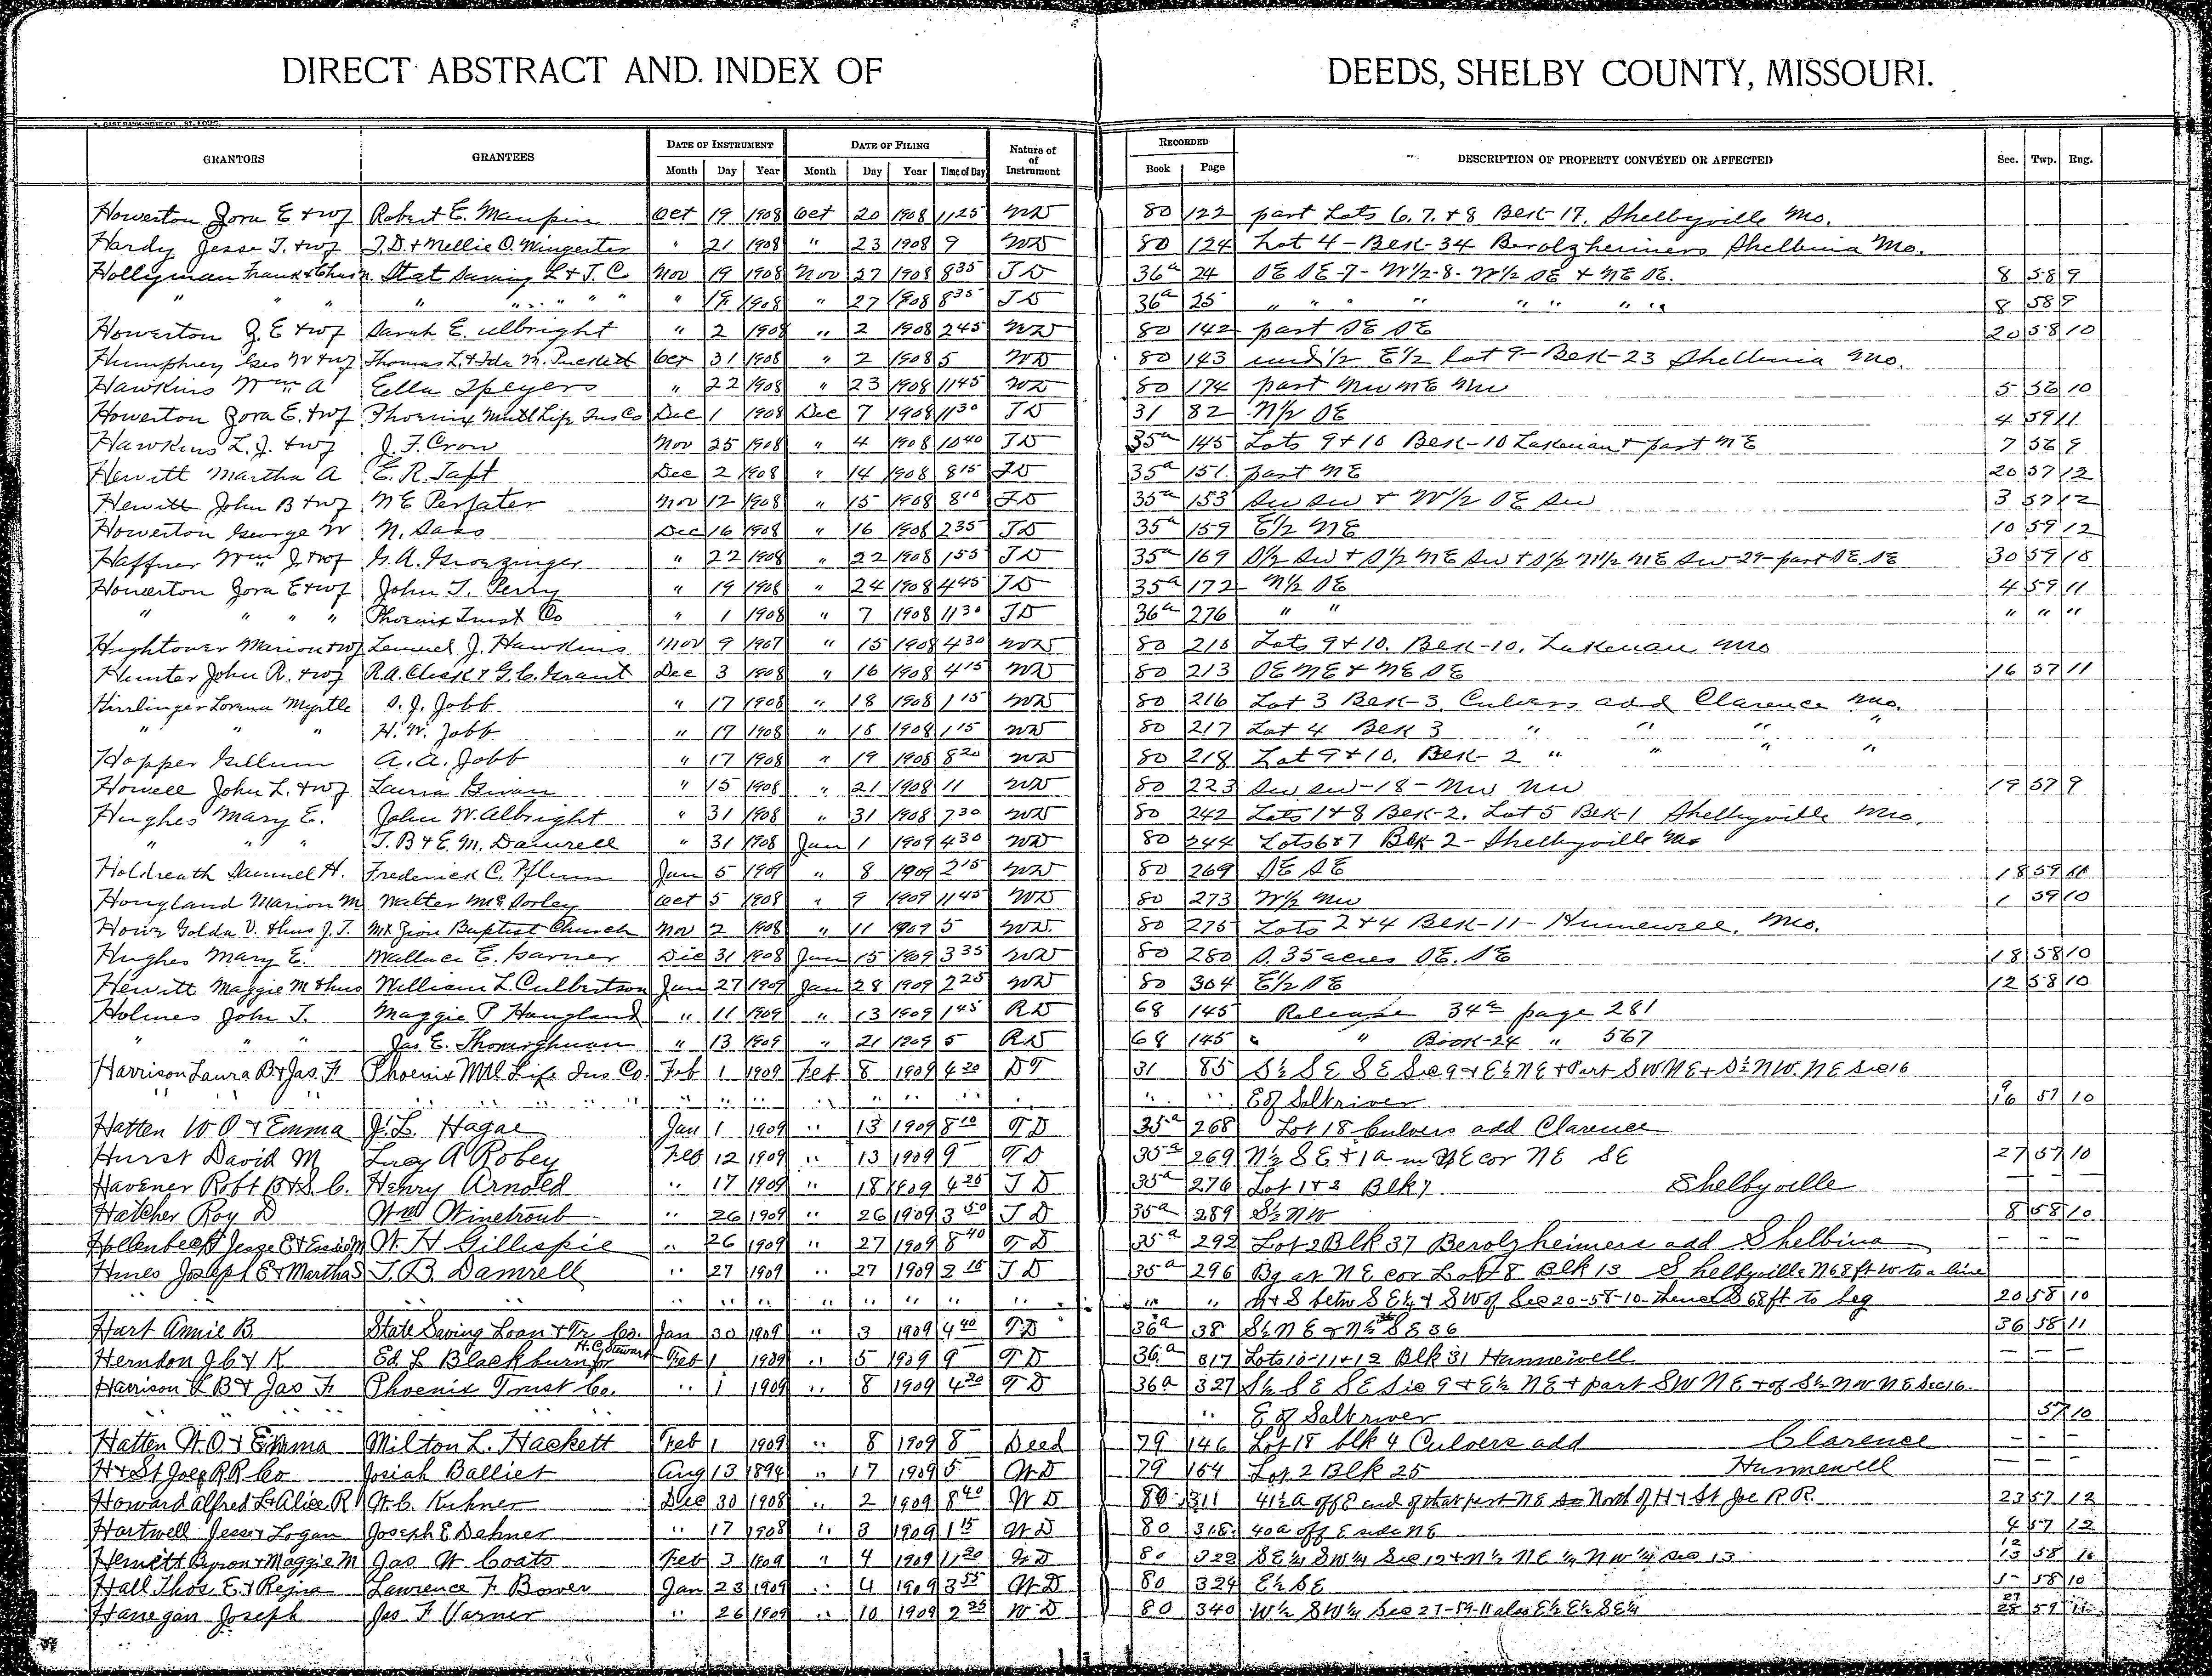 DIRECT ABSTRACT AND. INDEX OF DEEDS, SHELBY COUNTY, MISSOURI.
GRANTORS GRANTEES DATE OF INSTRUMENT DATE OF FILING Nature of of Instrument RECORDED DESCRIPTION OF PROPERTY CONVEYED OR AFFECTED Sec. Twp. Rng.
Month Day Year Month Day Year Time of Day Book Page
Howerton Zora E + wf Robert E. Maupin Oct 19 1908 Oct 20 1908 11 25 WD 80 122 part Lots 6. 7. + 8 Blk-17. Shelbyville Mo.
Hardy Jesse T. + wf J.D. + Nellie O. Wingerter " 21 1908 " 23 1908 9 WD 80 124 Lot 4 - Blk-34 Berolzheimers Shelbina Mo.
Hollyman Frank + Chas n. Stat Saving L + T. C Nov 19 1908 Nov 27 1908 8 35 TD 36a 24 SE SE-7- W1/2-8- W1/2 SE + NE SE. 8 58 9
" " " " " " " " " 19 1908 " 27 1908 8 35 TD 36a 25 " " " " " " " " 8 58 9
Howerton Z. E + wf Sarah E. Albright " 2 1908 " 2 1908 2 45 WD 80 142 part SE SE 20 58 10
Humphrey Geo W + wf Thomas L. + Ida M. Puckett Oct 31 1908 " 2 1908 5 WD 80 143 und 1/2 E1/2 lot 9 - Blk-23 Shelbina Mo.
Hawkins Wm A Ella Speyers " 22 1908 " 23 1908 11 45 WD 80 174 part NW NE NW 5 56 10
Howerton Zora E. + wf Phoenix Mutl Life Ins Co Dec 1 1908 Dec 7 1908 11 30 TD 31 82 N1/2 SE 4 59 11
Hawkins L. J. + wf J. F. Crow Nov 25 1908 " 4 1908 10 40 TD 35a 145 Lots 9 + 10 Blk-10 Lakenan + part NE 7 56 9
Hewitt Martha A E. R. Taft Dec 2 1908 " 14 1908 8 15 TD 35a 151. part NE 20 57 12
Hewitt John B + wf N E Persater Nov 12 1908 " 15 1908 8 10 TD 35a 153 SW SW + W1/2 SE SW 3 57 12
Howerton George W N. Sass Dec 16 1908 " 16 1908 2 35 TD 35a 159 E1/2 NE 10 59 12
Haffner Wm J. + wf G. A. Groezinger " 22 1908 " 22 1908 1 55 TD 35a 169 S1/2 SW + S1/2 NE SW + S1/2 N1/2 NE SW-29-part SE SE 30 59 10
Howerton Zora E + wf John T. Perry " 19 1908 " 24 1908 4 45 TD 35a 172 N1/2 SE 4 59 11
" " " " Phoenix Trust Co " 1 1908 " 7 1908 11 30 TD 36a 276 " " " " "
Hightower Marion + wf Lemuel J. Hawkins Nov 9 1907 " 15 1908 4 30 WD 80 210 Lots 9 + 10. Blk-10. Lakenan Mo
Hunter John R. + wf R.A. Cleek + G. C. Grant Dec 3 1908 " 16 1908 4 15 WD 80 213 SE NE + NE SE 16 57 11
Hirrlinger Lorena Myrtle S. J. Jobb " 17 1908 " 18 1908 1 15 WD 80 216 Lot 3 Blk-3. Culvers add Clarence Mo.
" " " H. W. Jobb " 17 1908 " 18 1908 1 15 WD 80 217 Lot 4 Blk 3 " " " "
Hopper Gillum A. A. Jobb " 17 1908 " 19 1908 8 20 WD 80 218 Lot 9 + 10. Blk-2 " " " "
Howell John L. + wf Laura Givan " 15 1908 " 21 1908 11 WD 80 223 SW SW-18- NW NW 19 57 9
Hughes Mary E. John W. Albright " 31 1908 " 31 1908 7 30 WD 80 242 Lots 1 + 8 Blk-2. Lot 5 Blk-1 Shelbyville Mo.
" " " T. B + E. M. Damrell " 31 1908 Jan 1 1909 4 30 WD 80 244 Lots 6 + 7 Blk-2 - Shelbyville Mo
Holdreath Samuel H. Frederick C. Pflum Jan 5 1909 " 8 1909 2 15 WD 80 269 SE SE 18 59 11
Hougland Marion M Walter McSorley Oct 5 1908 " 9 1909 11 45 WD 80 273 W1/2 NW 1 59 10
Howe Golda V. + hus J. T. Mt Zion Baptist Church Nov 2 1908 " 11 1909 5 WD. 80 275 Lots 2 + 4 Blk-11- Hunnewell, Mo.
Hughes Mary E. Wallace E. Garner Dec 31 1908 Jan 15 1909 3 35 WD 80 280 S. 35 acres SE. SE 18 58 10
Hewitt Maggie M + hus William L. Culbertson Jan 27 1909 Jan 28 1909 2 25 WD 80 304 E1/2 SE 12 58 10
Holmes John T. Maggie P Hougland " 11 1909 " 13 1909 1 45 RD 68 145 Release 34a page 281
" " " Jas E. " 13 1909 " 21 1909 5 RD 68 145 " " Book-24 " 567
Harrison Laura B + Jas. F Phoenix Mtl Life Ins Co. Feb 1 1909 Feb 8 1909 4 20 DT 31 85 S½ SE SE Sec 9 + E½ NE + Part SW NE + S½ NW. NE Sec 16
" " " " " " " " " " " " " " " " E of Saltriver 9 16 57 10
Hatten W O + Emma J. L. Hagae Jan 1 1909 " 13 1909 8 10 TD 35a 268 Lot 18 Culvers add Clarence
Hurst David M Lucy A Robey Feb 12 1909 " 13 1909 9 TD 35a 269 N½ SE + 1a in NE cor NE SE 27 57 10
Havener Robt B + S. C. Henry Arnold " 17 1909 " 18 1909 4 25 TD 35a 276 Lot 1 + 2 Blk 7 Shelbyville — —
Hatcher Roy D Wm Winetroub " 26 1909 " 26 1909 3 50 TD 35a 289 S½ NW 8 58 10
Hollenbeck Jesse E + Essie M W. H Gillispie " 26 1909 " 27 1909 8 40 TD 35a 292 Lot 2 Blk 37 Berolzheimers add Shelbina — — —
Hines Joseph E + Martha S T. B. Damrell " 27 1909 " 27 1909 2 15 TD 35a 296 Bg at NE cor Lot 8 Blk 13 Shelbyville N 68 ft W to a line
" " " " " " " " " " " " n + S betw SE¼ + SW of Sec 20-58-10- thence S 68 ft to beg 20 58 10
Hart Annie B. State Saving Loan + Tr Co. Jan 30 1909 " 3 1909 4 40 TD 36a 38 S½ NE + N½ SE 36 36 58 11
Herndon J C + K Ed. L Blackburn for H. C. Stewart Feb 1 1909 " 5 1909 9 TD 36a 317 Lots 10-11 + 12 Blk 31 Hunnewell — — —
Harrison L B + Jas F Phoenix Trust Co. " 1 1909 " 8 1909 4 20 TD 36a 327 S½ SE SE Sec 9 + E½ NE + part SW NE + of S½ NW NE Sec 16.
" " " " " " E of Saltriver 57 10
Hatten W. O. + Emma Milton L. Hackett Feb 1 1909 " 8 1909 8 Deed 79 146 Lot 18 blk 4 Culvers add Clarence — — —
H + St Joe RR Co Josiah Balliet Aug 13 1894 " 17 1909 5 WD 79 164 Lot 2 Blk 25 Hunnewell — — —
Howard Alfred L + Alice R W. C. Kuhner Dec 30 1908 " 2 1909 8 40 WD 80 311 41½ a off E end of that part NE North of H + St Joe R R. 23 57 12
Hartwell Jesse + Logan Joseph E Dehner " 17 1908 " 3 1909 1 15 WD 80 318 40a off E side NE 4 57 12
Hewitt Byron + Maggie M Jas W Coats Feb 3 1909 " 4 1909 11 20 WD 80 322 SE¼ SW¼ Sec 12 + N½ NE¼ NW¼ Sec 13 12 13 58 10
Hall Thos. E. + Rejna Lawrence F. Bower Jan 23 1909 " 4 1909 3 55 WD 80 324 E½ SE 5 58 10
Hanegan Joseph Jas F Varner " 26 1909 " 10 1909 2 25 WD 80 340 W½ SW¼ Sec 27-59-11 also E½ E½ SE¼ 27 28 59 11